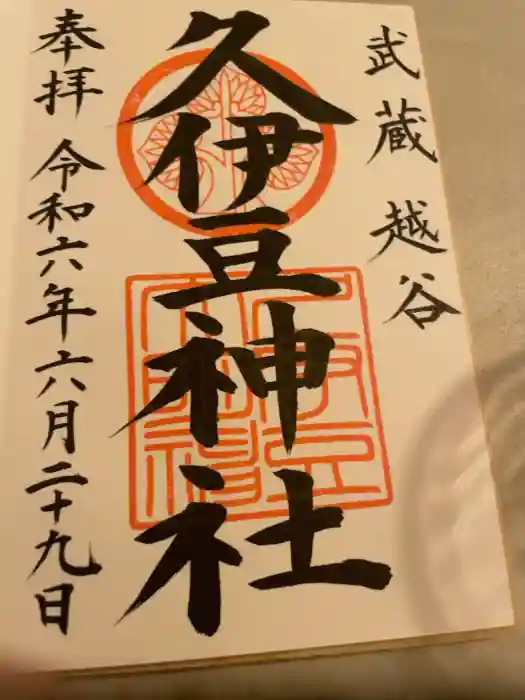 武蔵越谷
久伊豆神社
奉拝 令和六年六月二十九日